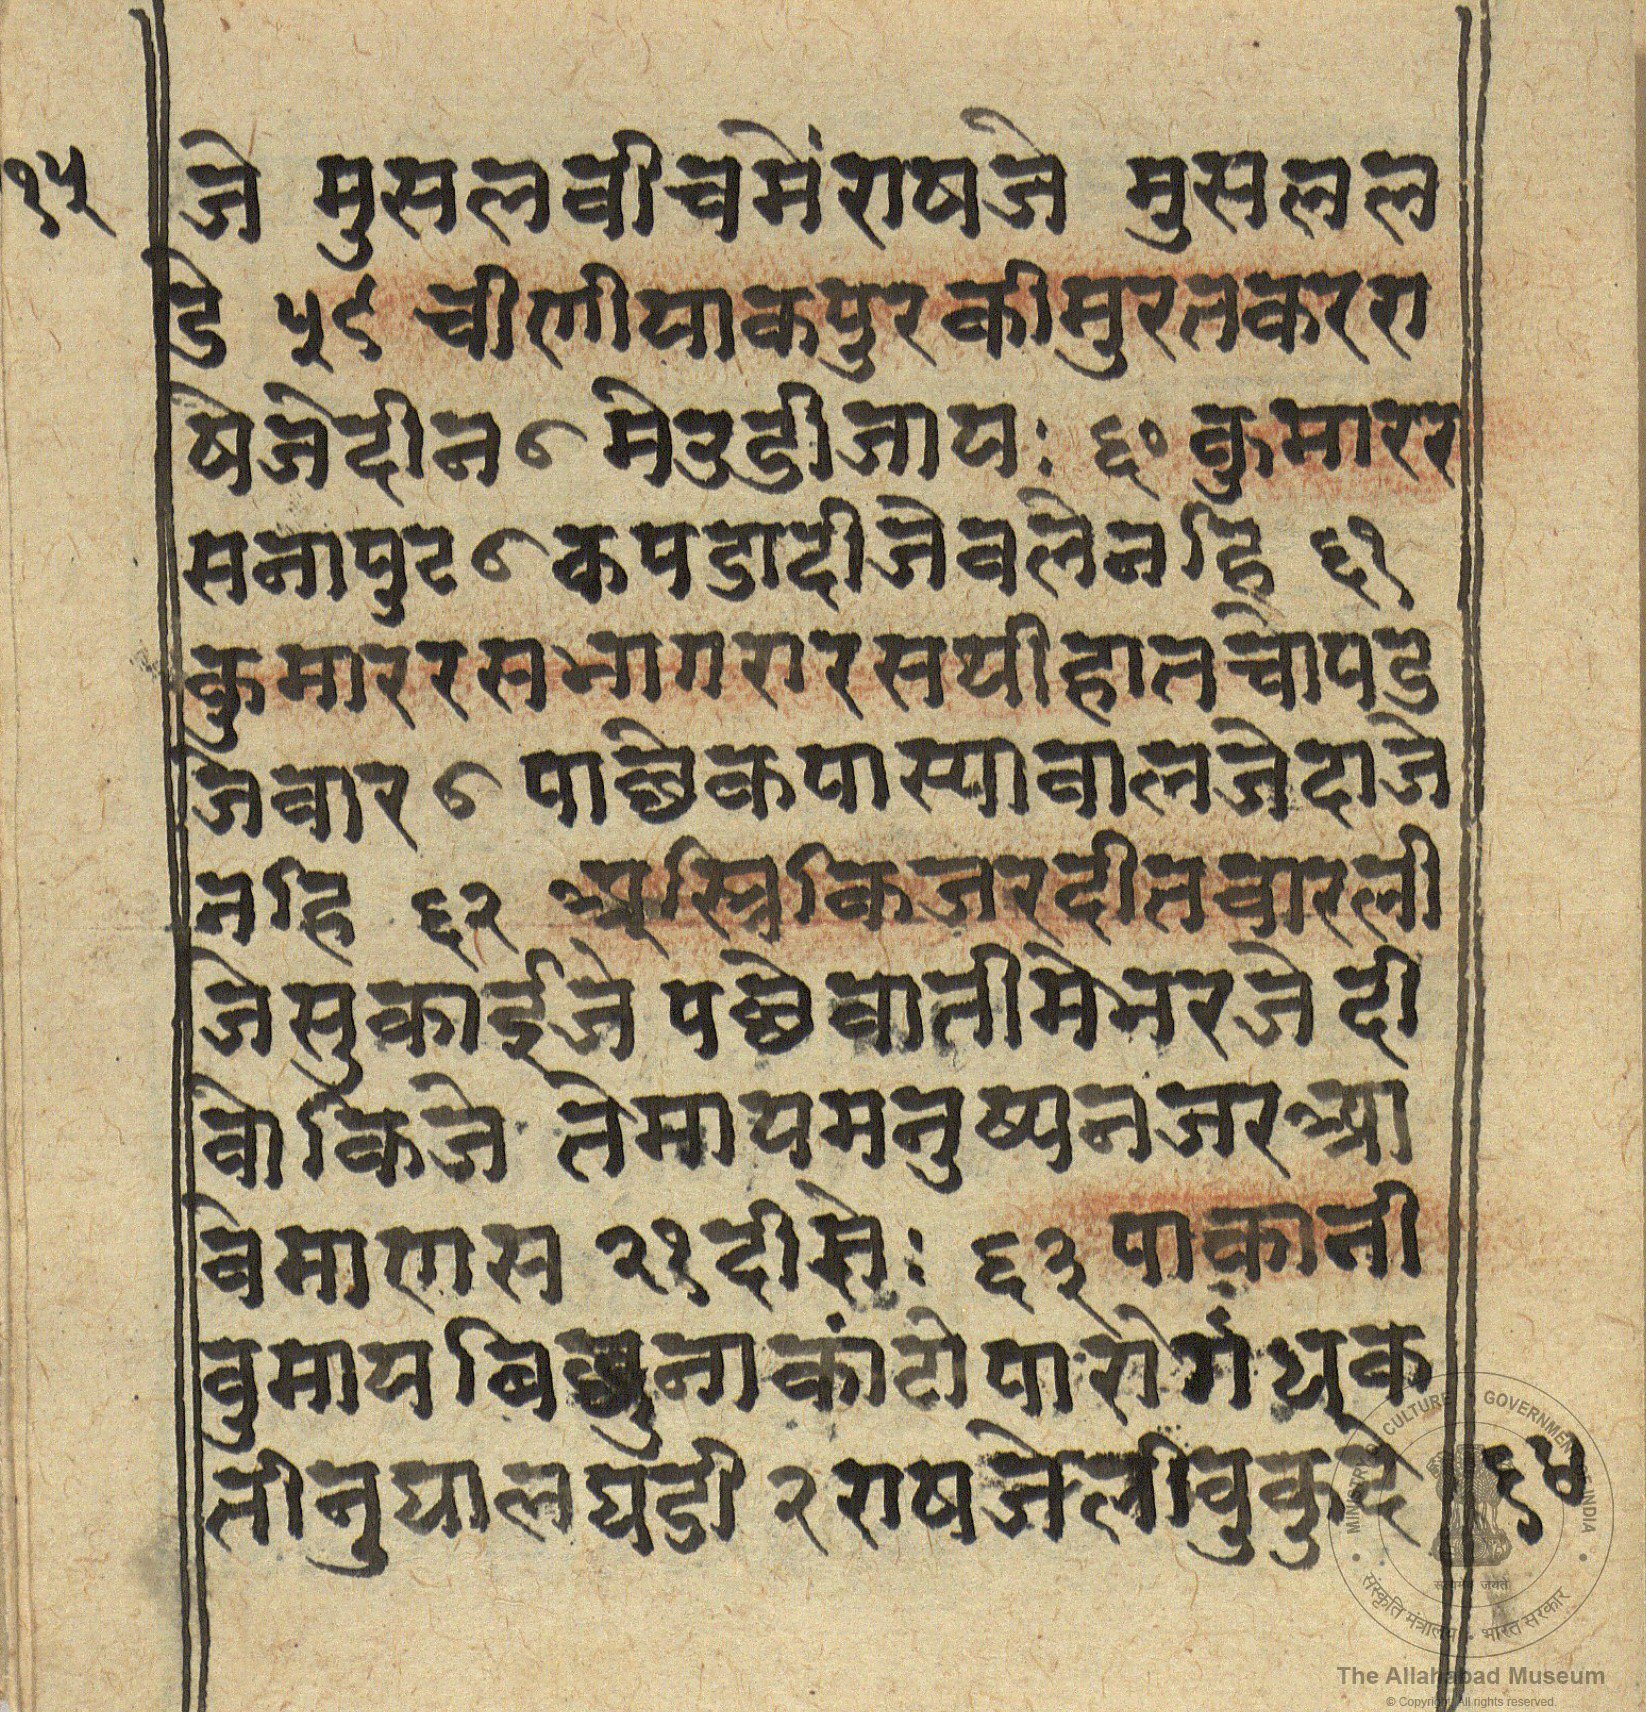 १५
जे मुसल बीचमें राषजे मुसल ल
डे ५९ चीणीया कपुर की मुरत कर रा
षेजे दीन ७ मे उडी जाय : ६० कुमार र
सना पुट ७ कपडा दीजे बले नहि ६१
कुमार रस भागरा रस थी हात चोपड
जे बार ७ पाछे कपास्या बालजे दाजे
नहि ६२
जे सुकाईजे पछे बाती मे भरजे दी
वो किजे ते माय मनुष्य नजर आ
वे माणस २१ दीसे : ६३ पाका नी
बु माय कांटो पारो
घडी २ राषजे लीबु कुदे ६४
MINISTRY OF CULTURE GOVERNMENT OF INDIA
सत्यमेव जयते
संस्कृति मंत्रालय भारत सरकार
The Allahabad Museum
© Copyright. All rights reserved.